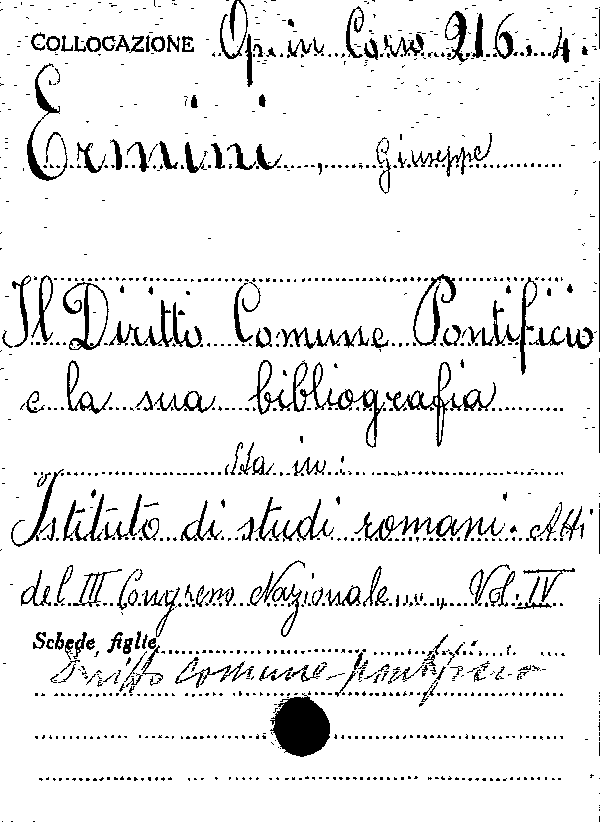 COLLOCAZIONE Op. in Corso 216. 4.
Ermini, Giuseppe
Il Diritto Comune Pontificio
e la sua bibliografia
Sta in:
Istituto di studi romani. Atti
del III Congresso Nazionale..... Vol. IV
Schede figlie
Diritto comune pontificio